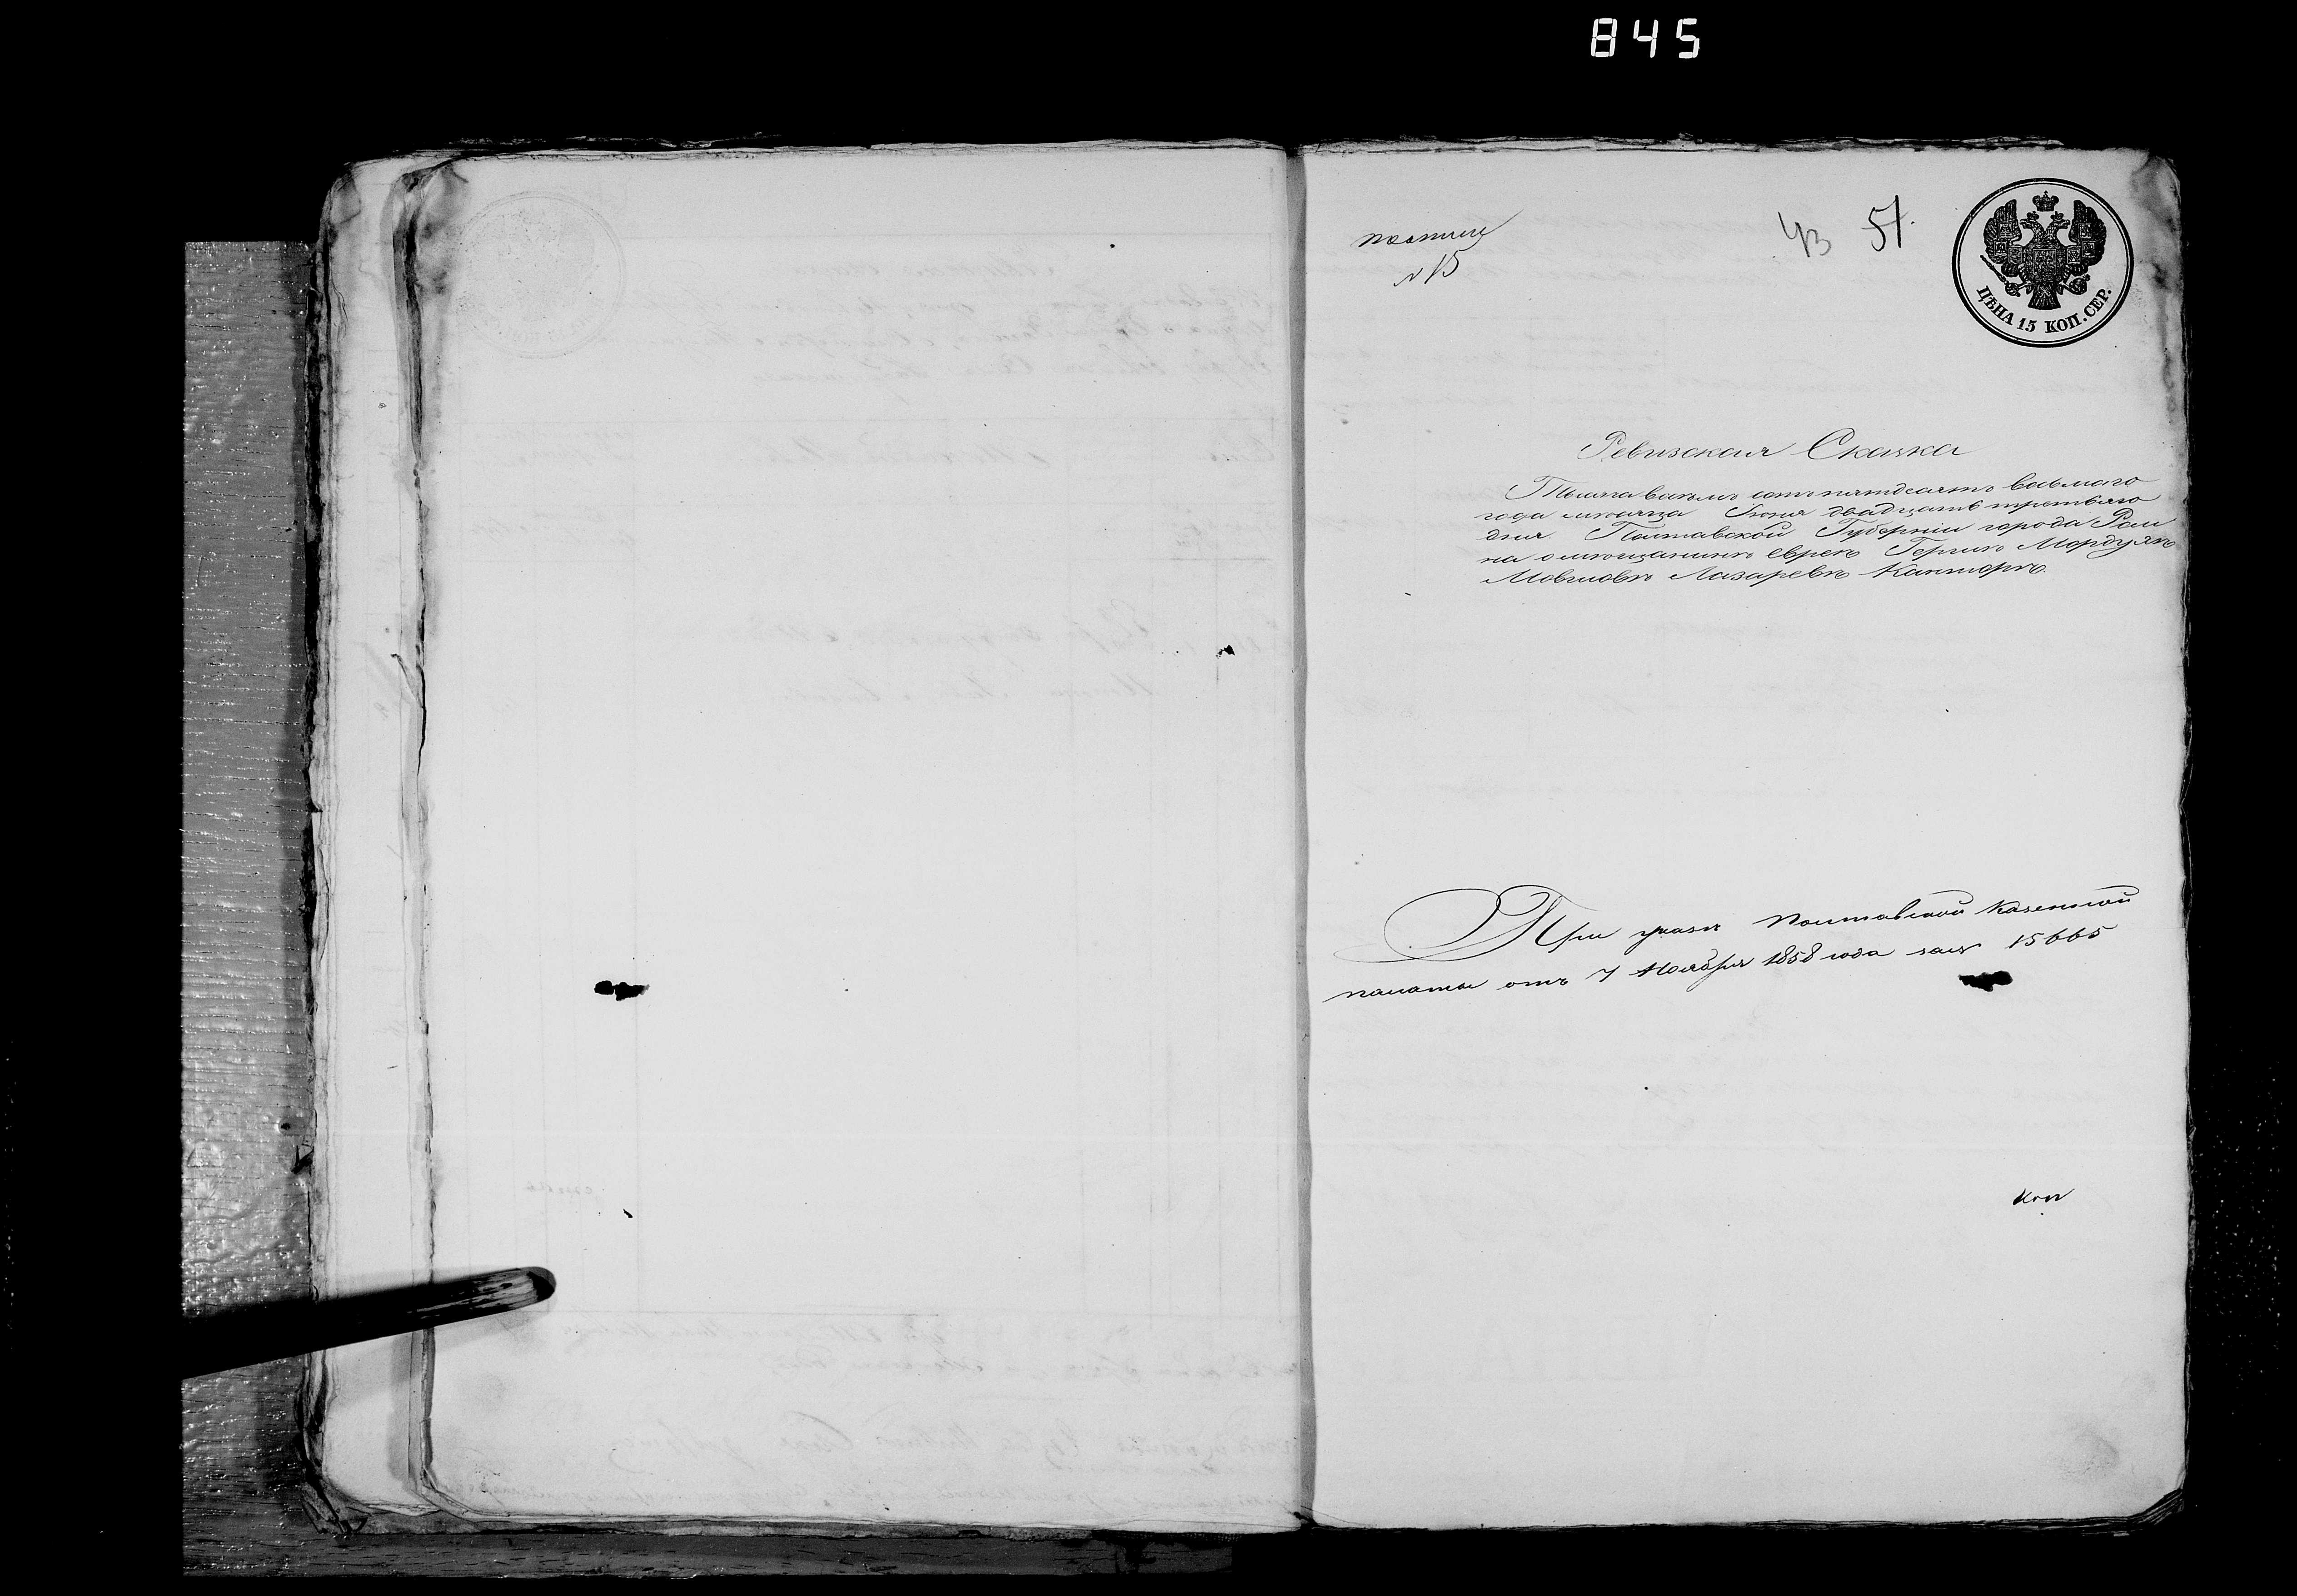 845
№ 15
43 51.
ЦѢНА 15 КОП. СЕР.
Ревизская Сказка
Тысяча восемь сотъ пятдесятъ восьмаго
года мѣсяца Іюня двадцать третьяго
дня Полтавской Губерніи города Ром
на о мѣщанинѣ евреѣ Гершкѣ Мордухѣ
Мовшовѣ Лазаревѣ Канторѣ.
При указѣ Полтавской Казенной
палаты отъ 7 Ноября 1858 года за № 15665